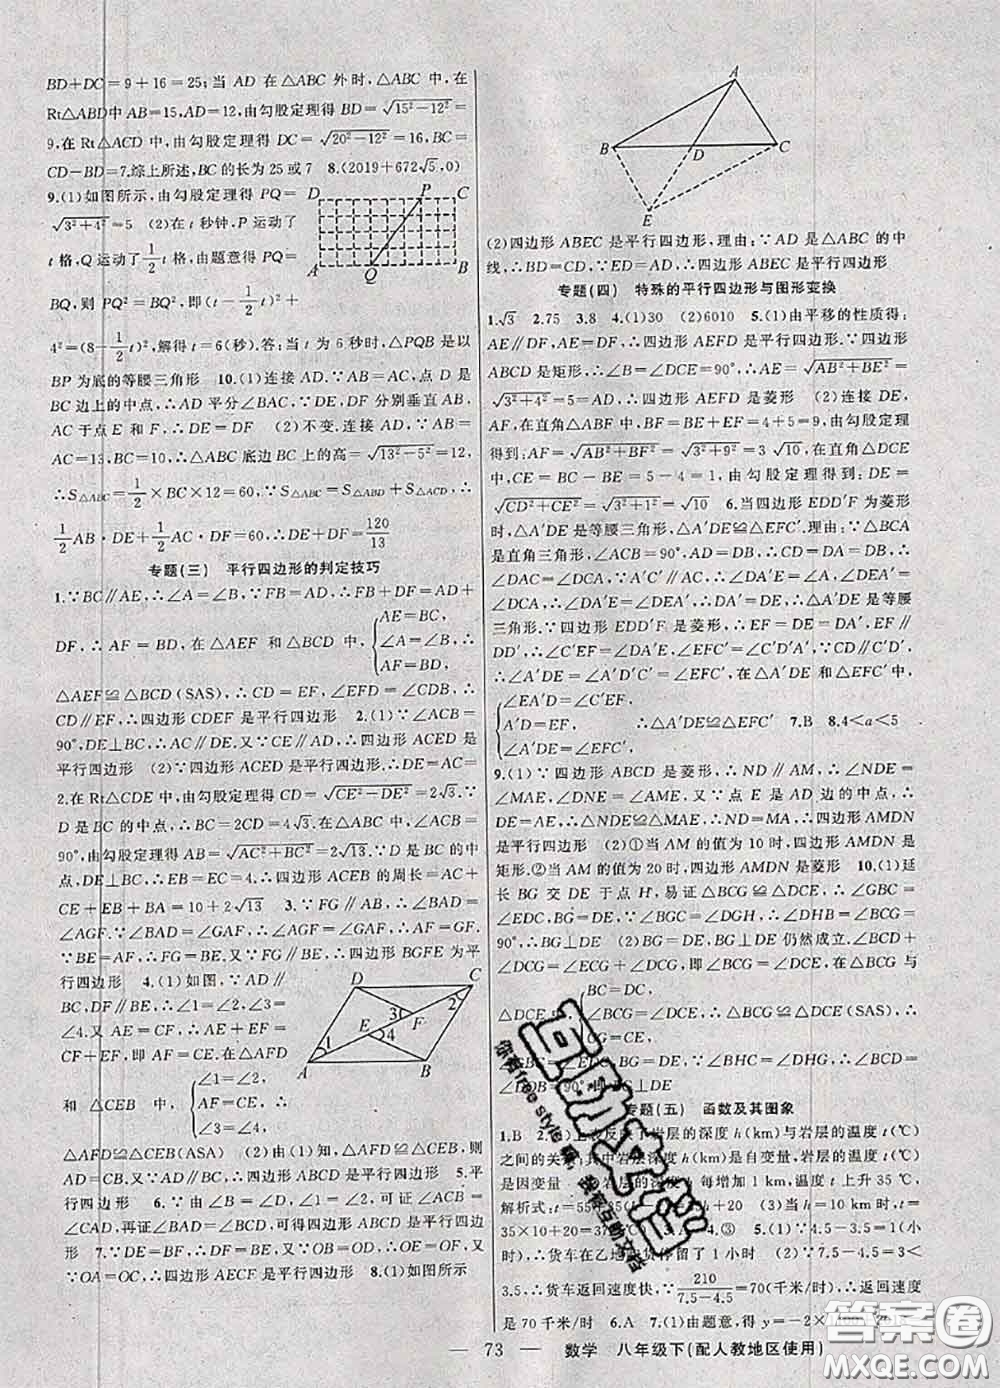 BD+DC=9+16=25;当 AD 在△ABC 外时,△ABC 中,在
Rt△ABD中 AB=15,AD=12,由勾股定理得 BD=√(15²-12²)=
9,在 Rt△ACD 中,由勾股定理得 DC=√(20²-12²)=16,BC=
CD-BD=7.综上所述,BC 的长为 25 或 7 8.(2019+672√5,0)
9.(1)如图所示,由勾股定理得 PQ=
√(3²+4²)=5 (2)在 t 秒钟,P 运动了
t 格,Q 运动了 1/2 t 格,由题意得 PQ=
BQ,则 PB²=BQ²,即(t-1/2 t)²+
4²=(8-1/2 t)²,解得 t=6(秒).答:当 t 为 6 秒时,△PQB 是以
BP 为底的等腰三角形 10.(1)连接 AD.∵AB=AC,点 D 是
BC 边上的中点,∴AD 平分∠BAC,∵DE,DF 分别垂直 AB,
AC 于点 E 和 F,∴DE=DF (2)不变.连接 AD,∵AB=
AC=13,BC=10,∴△ABC 底边上的高=√(13²-5²)=12,
∴S△ABC=1/2×BC×12=60,∵S△ABC=S△ABD+S△ACD,∴
1/2 AB·DE+1/2 AC·DF=60,∴DE+DF=120/13
专题(三) 平行四边形的判定技巧
1.∵BC∥AE,∴∠A=∠B,∵FB=AD,∴FB+DF=AD+
DF,∴AF=BD,在△AEF 和△BCD 中,{AE=BC, ∠A=∠B,∴ AF=BD.
△AEF≌△BCD(SAS),∴CD=EF,∠EFD=∠CDB,∴
CD∥EF,∴四边形 CDEF 是平行四边形 2.(1)∵∠ACB=
90°,DE⊥BC,∴AC∥DE.又∵CE∥AD,∴四边形 ACED 是
平行四边形 (2)∵四边形 ACED 是平行四边形,∴DE=AC=
2.在 Rt△CDE 中,由勾股定理得 CD=√(CE²-DE²)=2√3.∵
D 是 BC 的中点,∴BC=2CD=4√3.在△ABC 中,∠ACB=
90°,由勾股定理得 AB=√(AC²+BC²)=2√13.∵D 是 BC 的中
点,DE⊥BC,∴EB=EC=4,∴四边形 ACEB 的周长=AC+
CE+EB+BA=10+2√13 3.∵FG∥AB,∴∠BAG=
∠AGF.∵∠BAG=∠GAF,∴∠AGF=∠GAF,∴AF=GF.
∵BE=AF,∴BE=GF,∵FG∥BE,∴四边形 BGFE 为平
行四边形 4.(1)如图,∵AD∥
BC,DF∥BE,∴∠1=∠2,∠3=
∠4.又 AE=CF,∴AE+EF=
CF+EF,即 AF=CE.在△AFD
和△CEB 中,{∠1=∠2, AF=CE, ∠3=∠4, ∴
△AFD≌△CEB(ASA) (2)由(1)知,△AFD≌△CEB,则
AD=CB,又∵AD∥BC,∴四边形 ABCD 是平行四边形 5.平
行四边形 6.∵由∠B=∠D,∠1=∠2,可证∠ACB=
∠CAD,再证∠BAD=∠BCD,可得四边形 ABCD 是平行四
边形 7.∵DF∥BE,∴∠FDO=∠EBO,∴OF=OE,又
∵OA=OC,∴四边形 AECF 是平行四边形 8.(1)如图所示
D P C
A Q B
D C
3 2
E F
1 4
A B
A
B D C
E
(2)四边形 ABEC 是平行四边形,理由:∵AD 是△ABC 的中
线,∴BD=CD,∵ED=AD,∴四边形 ABEC 是平行四边形
专题(四) 特殊的平行四边形与图形变换
1.√3 2.75 3.8 4.(1)30 (2)6010 5.(1)由平移的性质得:
AE∥DF,AE=DF,∴四边形 AEFD 是平行四边形.∵四边形
ABCD 是矩形,∴∠B=∠DCE=90°,∴AE=√(AB²+BE²)=
√(3²+4²)=5=AD,∴四边形 AEFD 是菱形 (2)连接 DE,
AF,在直角△ABF 中,BF=BE+EF=4+5=9,由勾股定理
得到:AF=√(AB²+BF²)=√(3²+9²)=3√10,在直角△DCE
中,CE=BC-BE=5-4=1,由勾股定理得到:DE=
√(CD²+CE²)=√(3²+1²)=√10 6.当四边形 EDD′F 为菱形
时,△A′DE 是等腰三角形,△A′DE≌△EFC′.理由:∵△BCA
∠DAC=∠DCA.∵AC∥A′C′,∴∠DA′E=∠A,∠DEA′=
∠DCA,∴∠DA′E=∠DEA′,∴DA′=DE,∴△A′DE 是等腰
三角形.∵四边形 EDD′F 是菱形,∴EF=DE=DA′,EF∥
DD′.∴∠C′EF=∠DA′E,∠EFC′=∠C′D′A′,∵CD∥C′D′,∴
{∠EA′D=∠C′EF, A′D=EF, ∠A′DE=∠EFC′,
∴△A′DE≌△EFC′ 7.B 8.4<a<5
9.(1)∵四边形 ABCD 是菱形,∴ND∥AM,∴∠NDE=
∠MAE,∠DNE=∠AME,又∵点 E 是 AD 边的中点,∴
DE=AE,∴△NDE≌△MAE,∴ND=MA,∴四边形 AMDN
是平行四边形 (2)①当 AM 的值为 10 时,四边形 AMDN 是
矩形.②当 AM 的值为 20 时,四边形 AMDN 是菱形 10.(1)延
长 BG 交 DE 于点 H,易证△BCG≌△DCE,∴∠GBC=
∠EDC,BG=DE,∵∠BGC=∠DGH,∴∠DHB=∠BCG=
90°,∴BG⊥DE (2)BG=DE,BG⊥DE 仍然成立.∠BCD+
∠DCG=∠ECG+∠DCG,即∠BCG=∠DCE,在△BCG 与
{BC=DC,
≌△DCE(SAS),∴
CG=CE,
BG=DE,∵∠BHC=∠DHG,∴∠BCD=
BG⊥DE
专题(五) 函数及其图象
是因变量
35×10+20=37
4.③ 5.(1)∵4.5-3.5=1(小
时),∴货车在乙地 停留了 1 小时 (2)∵7.5-4.5=3<
3.5,∴货车返回速度快,∵210/(7.5-4.5)=70(千米/时),∴返回速度
是 70 千米/时 6.A 7.(1)由题意,得 y=-2×
— 73 — 数学 八年级下(配人教地区使用)
互助文学
答案圈
MXQE.COM